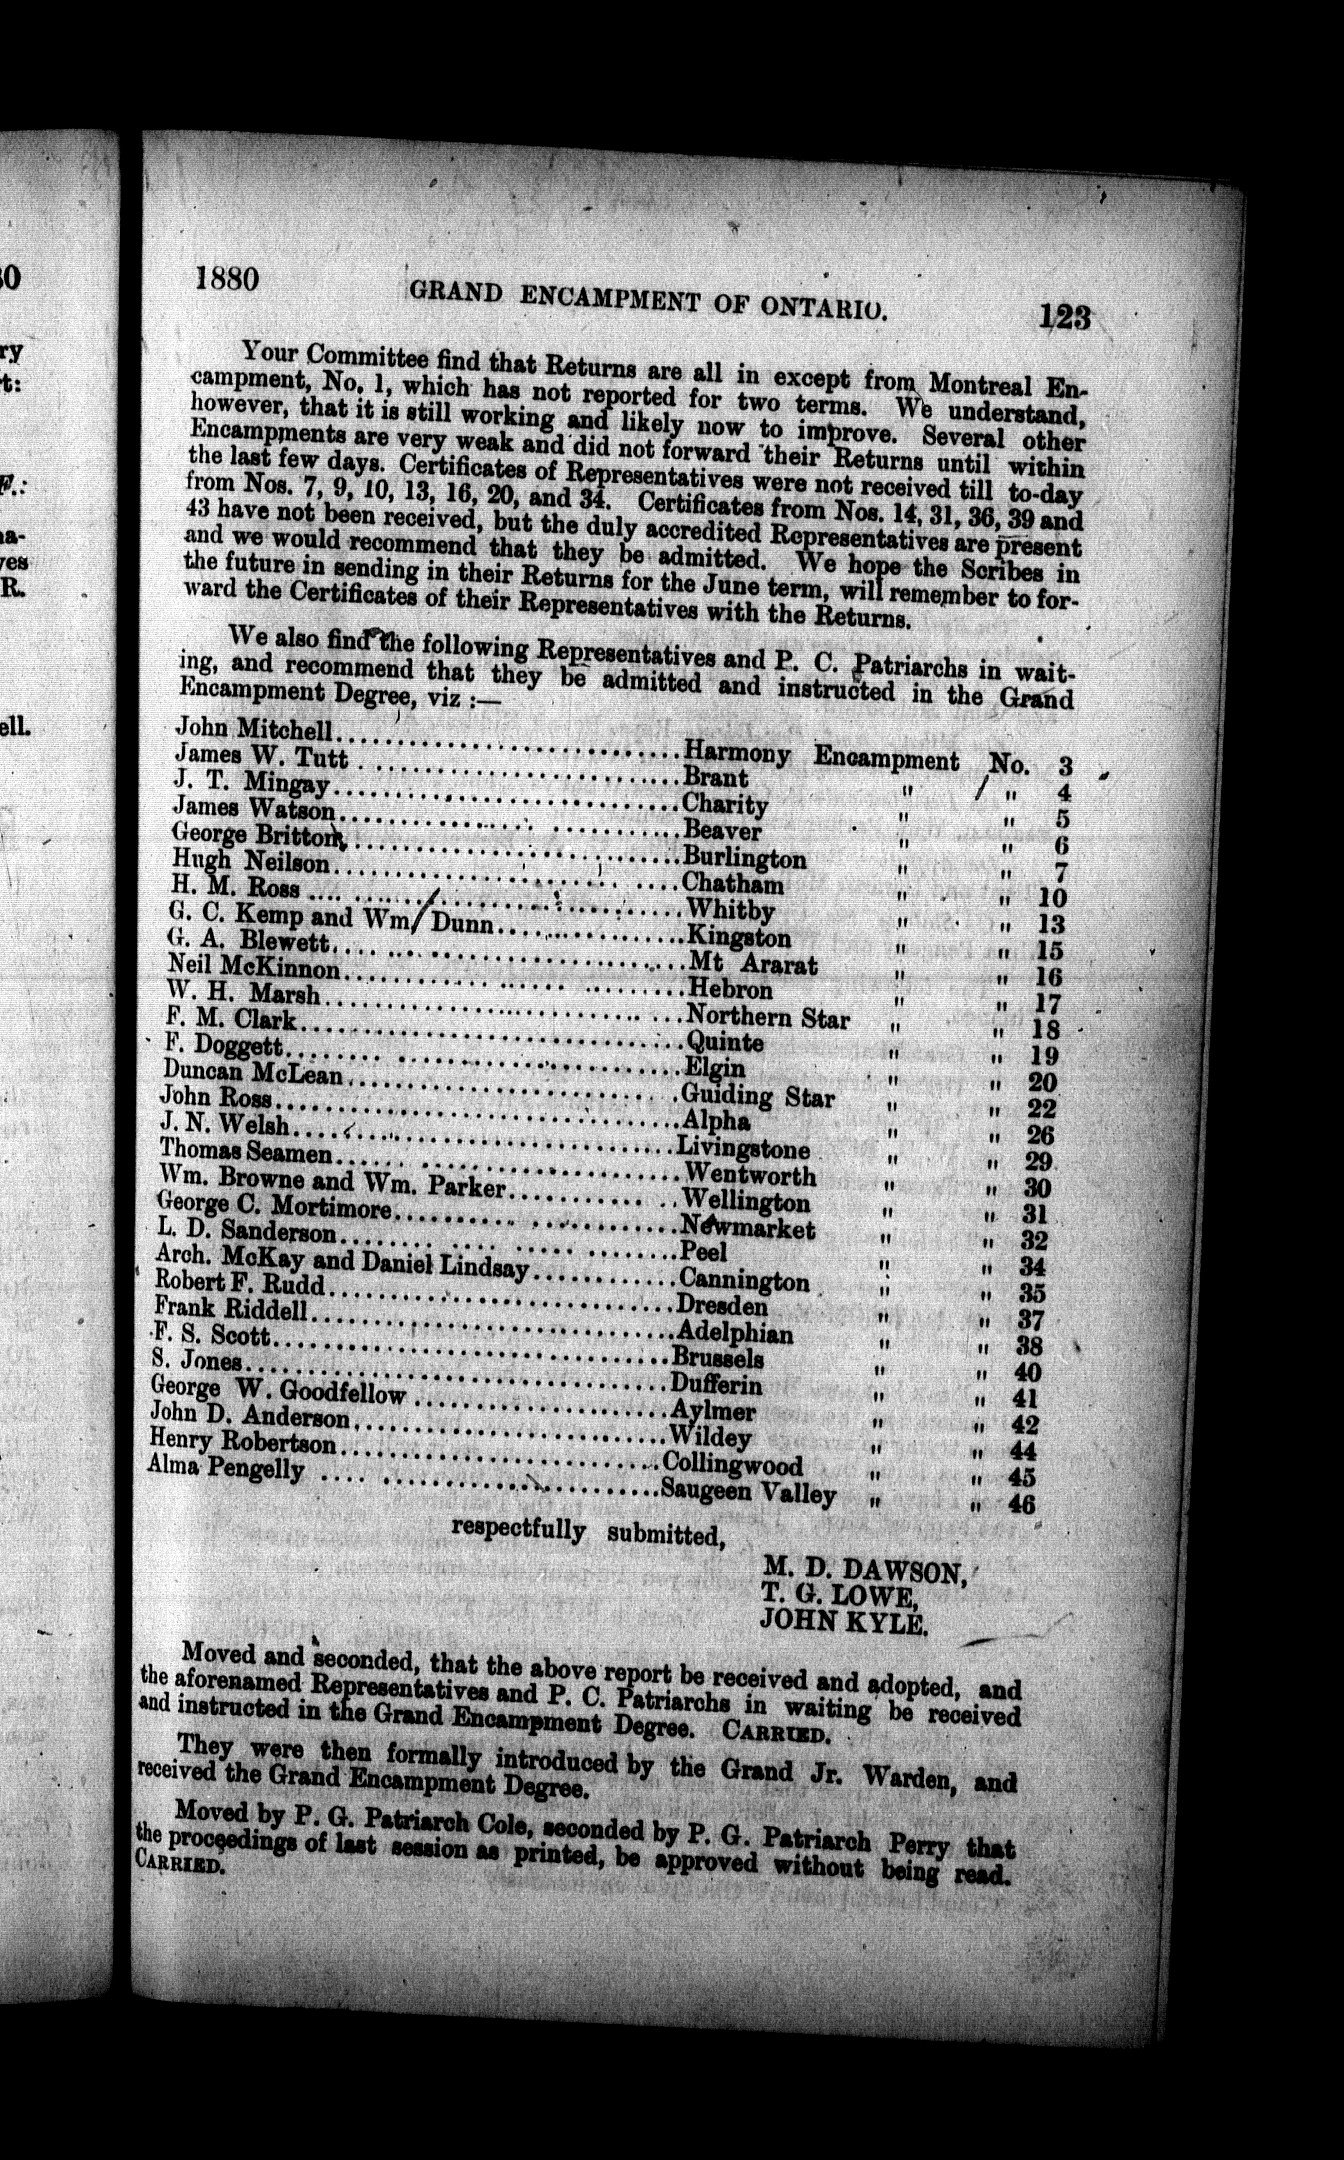 1880 GRAND ENCAMPMENT OF ONTARIO. 123
Your Committee find that Returns are all in except from Montreal En-
campment, No. 1, which has not reported for two terms. We understand,
however, that it is still working and likely now to improve. Several other
Encampments are very weak and did not forward their Returns until within
the last few days. Certificates of Representatives were not received till to-day
from Nos. 7, 9, 10, 13, 16, 20, and 34. Certificates from Nos. 14, 31, 36, 39 and
43 have not been received, but the duly accredited Representatives are present
and we would recommend that they be admitted. We hope the Scribes in
the future in sending in their Returns for the June term, will remember to for-
ward the Certificates of their Representatives with the Returns.
We also find the following Representatives and P. C. Patriarchs in wait-
ing, and recommend that they be admitted and instructed in the Grand
Encampment Degree, viz :—
John Mitchell..............................Harmony Encampment No. 3
James W. Tutt..............................Brant " " 4
J. T. Mingay..............................Charity " " 5
James Watson..............................Beaver " " 6
George Britton..............................Burlington " " 7
Hugh Neilson..............................Chatham " " 10
H. M. Ross..............................Whitby " " 13
G. C. Kemp and Wm. Dunn..................Kingston " " 15
G. A. Blewett..............................Mt Ararat " " 16
Neil McKinnon..............................Hebron " " 17
W. H. Marsh..............................Northern Star " " 18
F. M. Clark..............................Quinte " " 19
F. Doggett..............................Elgin " " 20
Duncan McLean..............................Guiding Star " " 22
John Ross..............................Alpha " " 26
J. N. Welsh..............................Livingstone " " 29
Thomas Seamen..............................Wentworth " " 30
Wm. Browne and Wm. Parker................Wellington " " 31
George C. Mortimore........................Newmarket " " 32
L. D. Sanderson..............................Peel " " 34
Arch. McKay and Daniel Lindsay............Cannington " " 35
Robert F. Rudd..............................Dresden " " 37
Frank Riddell..............................Adelphian " " 38
F. S. Scott..............................Brussels " " 40
S. Jones..............................Dufferin " " 41
George W. Goodfellow......................Aylmer " " 42
John D. Anderson..........................Wildey " " 44
Henry Robertson..........................Collingwood " " 45
Alma Pengelly..............................Saugeen Valley " " 46
respectfully submitted,
M. D. DAWSON,
T. G. LOWE,
JOHN KYLE.
Moved and seconded, that the above report be received and adopted, and
the aforenamed Representatives and P. C. Patriarchs in waiting be received
and instructed in the Grand Encampment Degree. CARRIED.
They were then formally introduced by the Grand Jr. Warden, and
received the Grand Encampment Degree.
Moved by P. G. Patriarch Cole, seconded by P. G. Patriarch Perry that
the proceedings of last session as printed, be approved without being read.
CARRIED.